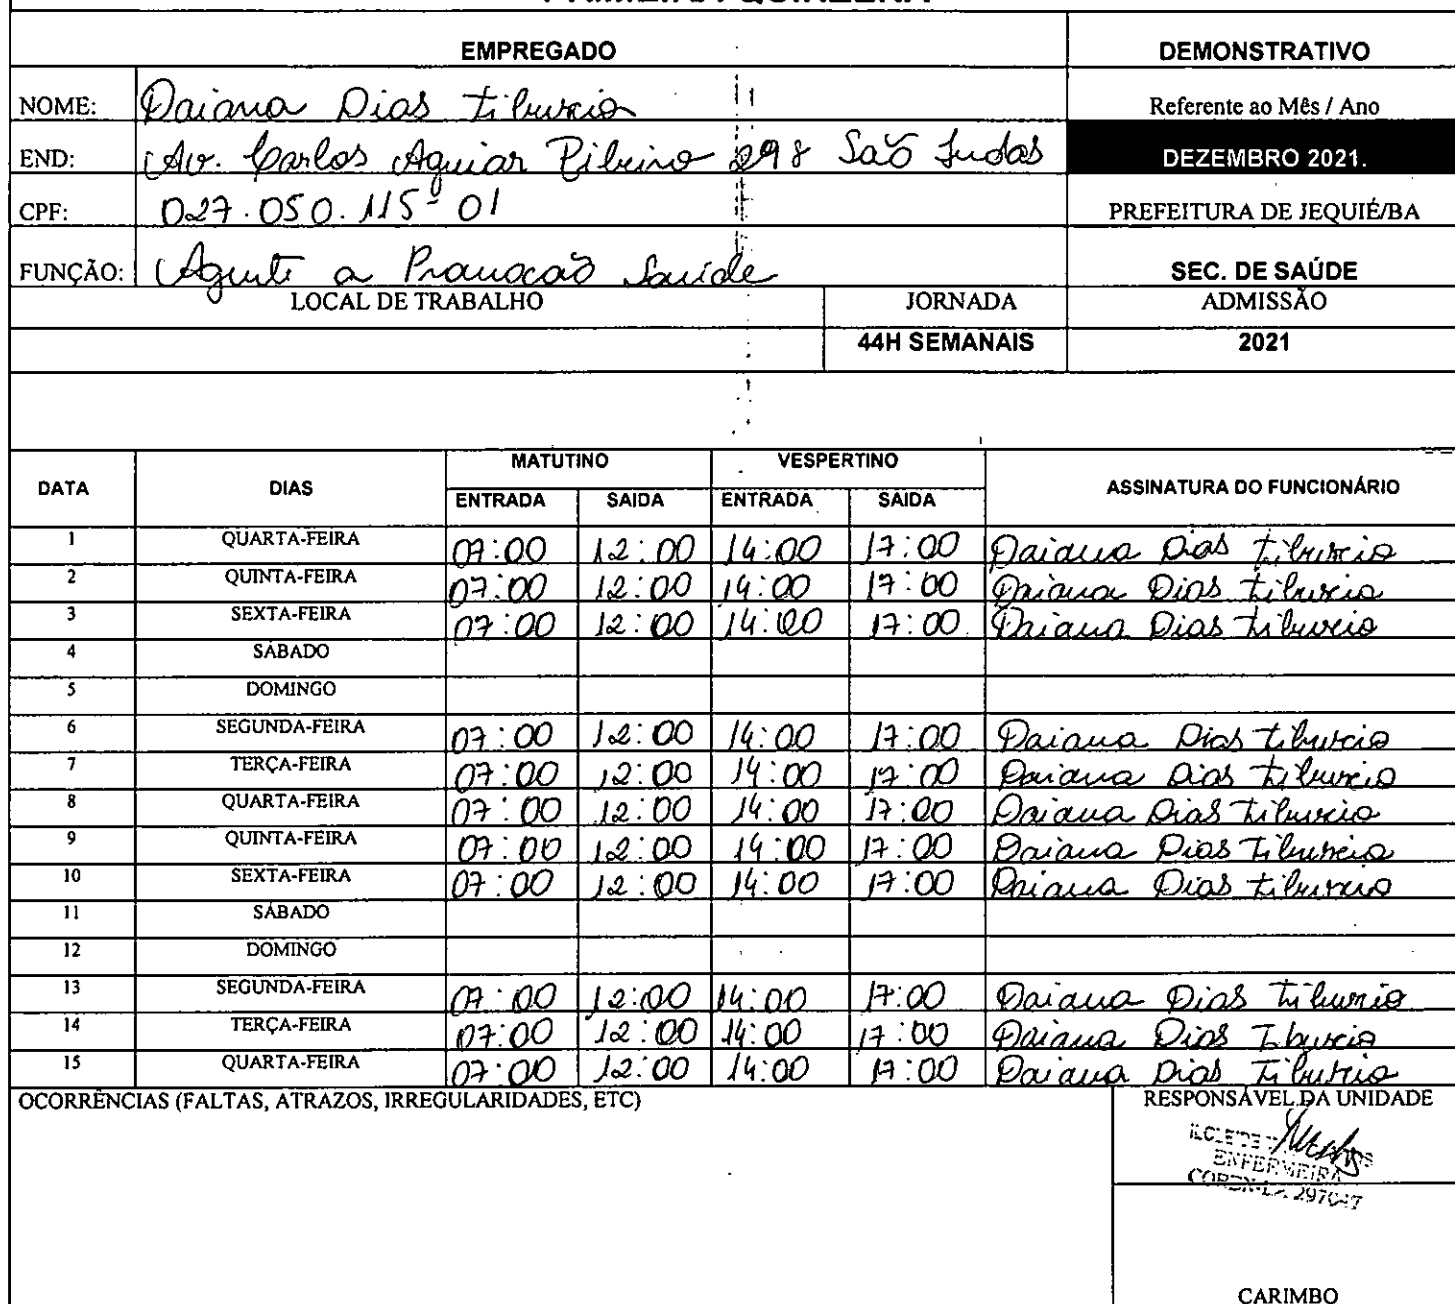 EMPREGADO DEMONSTRATIVO
NOME: Daiana Dias Tiburcio Referente ao Mês / Ano
END: Av. Carlos Aguiar Ribeiro 298 São Judas DEZEMBRO 2021.
CPF: 027.050.115-01 PREFEITURA DE JEQUIÉ/BA
FUNÇÃO: Agente a Promoção Saúde SEC. DE SAÚDE
LOCAL DE TRABALHO JORNADA ADMISSÃO
44H SEMANAIS 2021
MATUTINO VESPERTINO
DATA DIAS ASSINATURA DO FUNCIONÁRIO
ENTRADA SAIDA ENTRADA SAIDA
1 QUARTA-FEIRA 07:00 12:00 14:00 17:00 Daiana Dias Tiburcio
2 QUINTA-FEIRA 07:00 12:00 14:00 17:00 Daiana Dias Tiburcio
3 SEXTA-FEIRA 07:00 12:00 14:00 17:00 Daiana Dias Tiburcio
4 SÁBADO
5 DOMINGO
6 SEGUNDA-FEIRA 07:00 12:00 14:00 17:00 Daiana Dias Tiburcio
7 TERÇA-FEIRA 07:00 12:00 14:00 17:00 Daiana Dias Tiburcio
8 QUARTA-FEIRA 07:00 12:00 14:00 17:00 Daiana Dias Tiburcio
9 QUINTA-FEIRA 07:00 12:00 14:00 17:00 Daiana Dias Tiburcio
10 SEXTA-FEIRA 07:00 12:00 14:00 17:00 Daiana Dias Tiburcio
11 SÁBADO
12 DOMINGO
13 SEGUNDA-FEIRA 07:00 12:00 14:00 17:00 Daiana Dias Tiburcio
14 TERÇA-FEIRA 07:00 12:00 14:00 17:00 Daiana Dias Tiburcio
15 QUARTA-FEIRA 07:00 12:00 14:00 17:00 Daiana Dias Tiburcio
OCORRÊNCIAS (FALTAS, ATRAZOS, IRREGULARIDADES, ETC) RESPONSÁVEL DA UNIDADE
ENFERMEIRA
CARIMBO